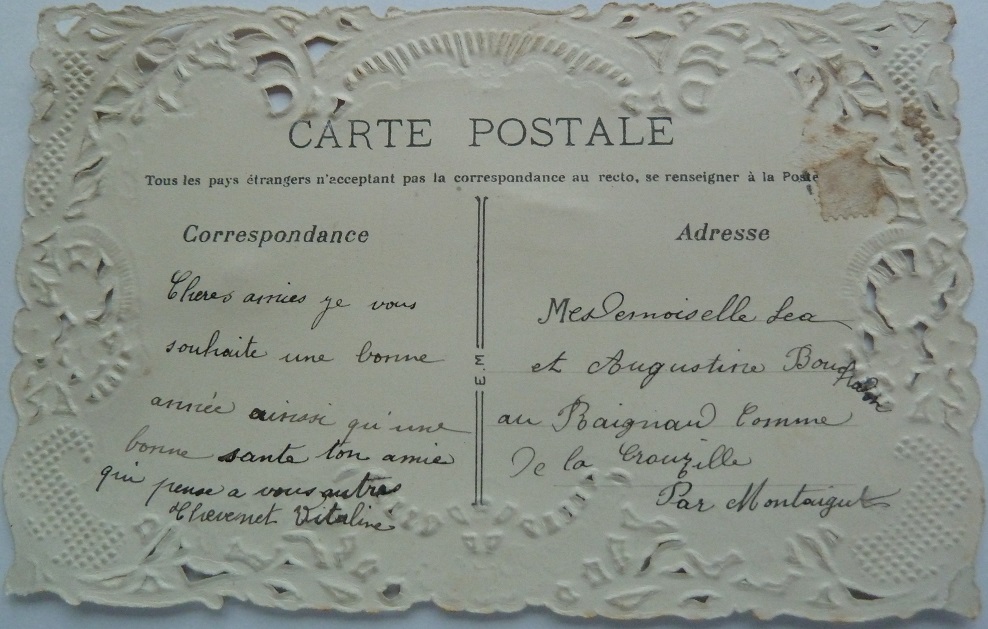 CARTE POSTALE
Tous les pays étrangers n'acceptant pas la correspondance au recto, se renseigner à la Poste
Correspondance
Cheres amies je vous
souhaite une bonne
année ainssi qu'une
bonne sante ton amie
qui pense a vous autres
Chevenet Vitaline
E.M
Adresse
MesDemoiselle Lea
et Augustine
au Raignaud Comme
De la Crouzille
Par Montaigut